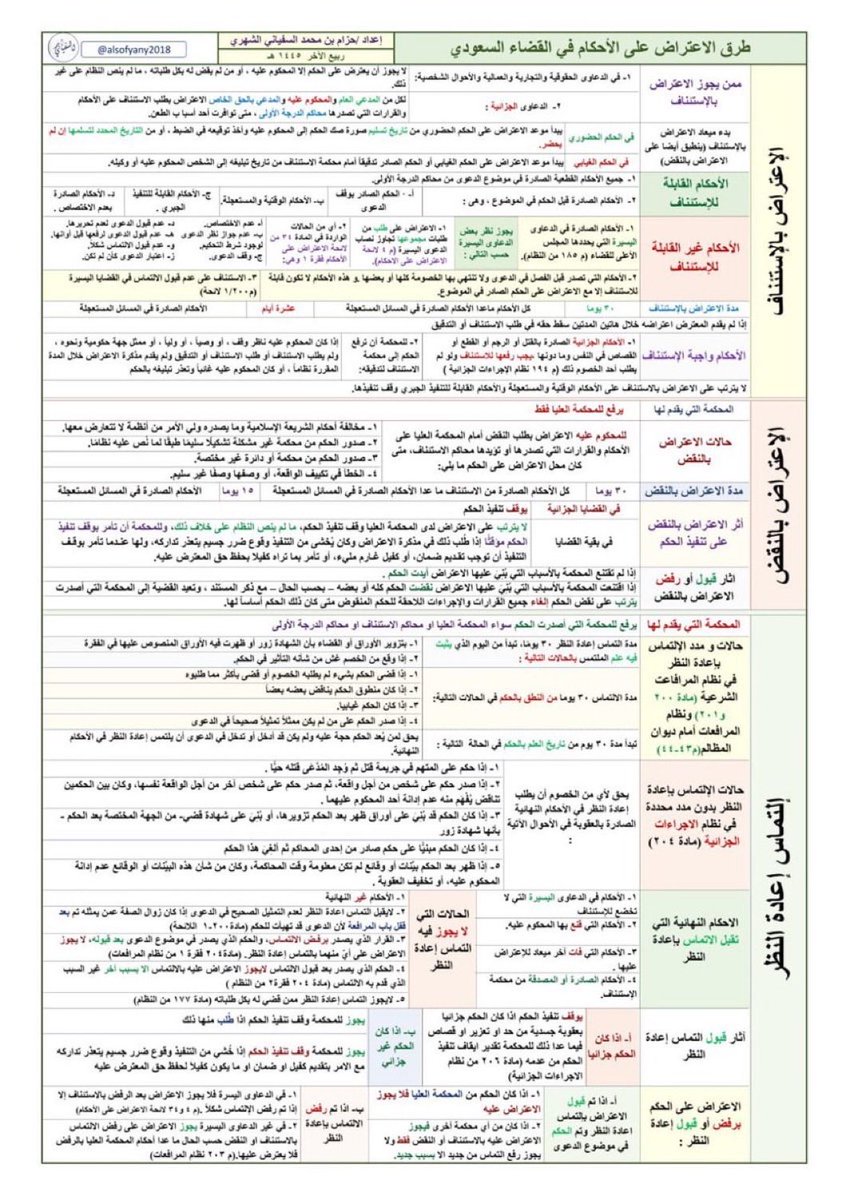 طرق الاعتراض على الأحكام في القضاء السعودي
إعداد /حزام بن محمد السفياني الشهري
ربيع الآخر ١٤٤٥ هـ
@alsofyany2018
الإعتراض بالإستئناف
ممن يجوز الاعتراض بالإستئناف
١- في الدعاوى الحقوقية والتجارية والعمالية والأحوال الشخصية:
لا يجوز أن يعترض على الحكم إلا المحكوم عليه ، أو من لم يقض له بكل طلباته ، ما لم ينص النظام على غير ذلك.
٢- الدعاوى الجزائية :
لكل من المدعي العام والمحكوم عليه والمدعي بالحق الخاص الاعتراض بطلب الاستئناف على الأحكام والقرارات التي تصدرها محاكم الدرجة الأولى ، متى توافرت أحد أسبا ب الطعن.
بدء ميعاد الاعتراض بالاستئناف (ينطبق أيضا على الاعتراض بالنقض)
في الحكم الحضوري
يبدأ موعد الاعتراض على الحكم الحضوري من تاريخ تسليم صورة صك الحكم إلى المحكوم عليه وأخذ توقيعه في الضبط ، أو من التاريخ المحدد لتسلمها إن لم يحضر.
في الحكم الغيابي
يبدأ موعد الاعتراض على الحكم الغيابي أو الحكم الصادر تدقيقاً أمام محكمة الاستئناف من تاريخ تبليغه إلى الشخص المحكوم عليه أو وكيله.
الأحكام القابلة للإستئناف
١- جميع الأحكام القطعية الصادرة في موضوع الدعوى من محاكم الدرجة الأولى.
٢- الأحكام الصادرة قبل الحكم في الموضوع ، وهي :
أ- الحكم الصادر بوقف الدعوى
ب- الأحكام الوقتية والمستعجلة.
ج- الأحكام القابلة للتنفيذ الجبري .
د- الأحكام الصادرة بعدم الاختصاص .
الأحكام غير القابلة للإستئناف
١- الأحكام الصادرة في الدعاوى اليسيرة التي يحددها المجلس الأعلى للقضاء (م ١٨٥ من النظام).
يجوز نظر بعض الدعاوى اليسيرة حسب التالي :
١- الاعتراض على طلب من طلبات مجموعها تجاوز نصاب الدعوى اليسيرة (م ٤ لائحة الاعتراض على الاحكام).
٢- أي من الحالات الواردة في المادة ٣٤ من لائحة الاعتراض على الأحكام فقرة ١ وهي:
أ- عدم الاختصاص.
ب- عدم جواز نظر الدعوى لوجود شرط التحكيم.
ج- وقف الدعوى.
د- عدم قبول الدعوى لعدم تحريرها.
هـ- عدم قبول الدعوى لرفعها قبل أوانها.
و- عدم قبول الالتماس شكلاً.
ز- اعتبار الدعوى كان لم تكن.
٢- الأحكام التي تصدر قبل الفصل في الدعوى ولا تنتهي بها الخصومة كلها أو بعضها ، و هذه الأحكام لا تكون قابلة للاستئناف إلا مع الاعتراض على الحكم الصادر في الموضوع.
٣- الاستئناف على عدم قبول الالتماس في القضايا اليسيرة (م١/٢٠٠ لائحة)
مدة الاعتراض بالإستئناف
٣٠ يوما
كل الأحكام ماعدا الأحكام الصادرة في المسائل المستعجلة
عشرة أيام
الأحكام الصادرة في المسائل المستعجلة
إذا لم يقدم المعترض اعتراضه خلال هاتين المدتين سقط حقه في طلب الاستئناف أو التدقيق
الأحكام واجبة الإستئناف
١- الأحكام الجزائية الصادرة بالقتل أو الرجم أو القطع أو القصاص في النفس وما دونها ،يجب رفعها للاستئناف ولو لم يطلب أحد الخصوم ذلك (م ١٩٤ نظام الإجراءات الجزائية )
٢- للمحكمة أن ترفع الحكم إلى محكمة الاستئناف لتدقيقه:
إذا كان المحكوم عليه ناظر وقف ، أو وصياً ، أو ولياً ، أو ممثل جهة حكومية ونحوه ، ولم يطلب الاستئناف أو طلب الاستئناف أو التدقيق ولم يقدم مذكرة الاعتراض خلال المدة المقررة نظاماً ، أو كان المحكوم عليه غائباً وتعذر تبليغه بالحكم
لا يترتب على الاعتراض بالاستئناف على الأحكام الوقتية والمستعجلة والأحكام القابلة للتنفيذ الجبري وقف تنفيذها.
الإعتراض بالنقض
المحكمة التي يقدم لها
يرفع للمحكمة العليا فقط
حالات الاعتراض بالنقض
للمحكوم عليه الاعتراض بطلب النقض أمام المحكمة العليا على الأحكام والقرارات التي تصدرها أو تؤيدها محاكم الاستئناف، متى كان محل الاعتراض على الحكم ما يلي:
١- مخالفة أحكام الشريعة الإسلامية وما يصدره ولي الأمر من أنظمة لا تتعارض معها.
٢- صدور الحكم من محكمة غير مشكلة تشكيلًا سليمًا طبقًا لما نُص عليه نظامًا.
٣- صدور الحكم من محكمة أو دائرة غير مختصة.
٤- الخطأ في تكييف الواقعة، أو وصفها وصفًا غير سليم.
مدة الاعتراض بالنقض
٣٠ يوما
كل الأحكام الصادرة من الاستئناف ما عدا الأحكام الصادرة في المسائل المستعجلة
١٥ يوما
الأحكام الصادرة في المسائل المستعجلة
أثر الاعتراض بالنقض على تنفيذ الحكم
في القضايا الجزائية
يوقف تنفيذ الحكم
في بقية القضايا
لا يترتب على الاعتراض لدى المحكمة العليا وقف تنفيذ الحكم، ما لم ينص النظام على خلاف ذلك، وللمحكمة أن تأمر بوقف تنفيذ الحكم مؤقتًا إذا طُلب ذلك في مذكرة الاعتراض وكان يُخشى من التنفيذ وقوع ضرر جسيم يتعذر تداركه، ولها عندما تأمر بوقف التنفيذ أن توجب تقديم ضمان، أو كفيل غارم مليء، أو تأمر بما تراه كفيلا بحفظ حق المعترض عليه.
اثار قبول أو رفض الاعتراض بالنقض
إذا لم تقتنع المحكمة بالأسباب التي بُنِيَ عليها الاعتراض أيدت الحكم .
إذا اقتنعت المحكمة بالأسباب التي بُنِيَ عليها الاعتراض نقضت الحكم كله أو بعضه – بحسب الحال – مع ذكر المستند ، وتعيد القضية إلى المحكمة التي أصدرت
يترتب على نقض الحكم إلغاء جميع القرارات والإجراءات اللاحقة للحكم المنقوض متى كان ذلك الحكم أساساً لها.
إلتماس إعادة النظر
المحكمة التي يقدم لها
يرفع للمحكمة التي أصدرت الحكم سواء المحكمة العليا او محاكم الاستئناف او محاكم الدرجة الأولى
حالات و مدد الإلتماس بإعادة النظر في نظام المرافعات الشرعية (مادة ٢٠٠ و٢٠١) ونظام المرافعات أمام ديوان المظالم(م٤٣-٤٤)
مدة التماس إعادة النظر ٣٠ يومًا، تبدأ من اليوم الذي يثبت فيه علم الملتمس بالحالات التالية :
١- بتزوير الأوراق أو القضاء بأن الشهادة زور أو ظهرت فيه الأوراق المنصوص عليها في الفقرة
٢- إذا وقع من الخصم غش من شأنه التأثير في الحكم.
مدة الالتماس ٣٠ يوما من النطق بالحكم في الحالات التالية:
١- إذا قضى الحكم بشيء لم يطلبه الخصوم أو قضى بأكثر مما طلبوه
٢- إذا كان منطوق الحكم يناقض بعضه بعضاً
٣- إذا كان الحكم غيابيا.
٤- إذا صدر الحكم على من لم يكن ممثلاً تمثيلاً صحيحاً في الدعوى
تبدأ مدة ٣٠ يوم من تاريخ العلم بالحكم في الحالة التالية :
يحق لمن يُعد الحكم حجة عليه ولم يكن قد أدخل أو تدخل في الدعوى أن يلتمس إعادة النظر في الأحكام النهائية.
حالات الإلتماس بإعادة النظر بدون مدد محددة في نظام الاجراءات الجزائية (مادة ٢٠٤)
يحق لأي من الخصوم أن يطلب إعادة النظر في الأحكام النهائية الصادرة بالعقوبة في الأحوال الآتية :
١- إذا حكم على المتهم في جريمة قتل ثم وُجد المُدّعى قتله حيًّا .
٢- إذا صدر حكم على شخص من أجل واقعة، ثم صدر حكم على شخص آخر من أجل الواقعة نفسها، وكان بين الحكمين تناقض يُفْهَم منه عدم إدانة أحد المحكوم عليهما .
٣- إذا كان الحكم قد بُنِي على أوراق ظهر بعد الحكم تزويرها، أو بُنِيَ على شهادة قضي- من الجهة المختصة بعد الحكم - بأنها شهادة زور
٤- إذا كان الحكم مبنيًّا على حكم صادر من إحدى المحاكم ثم ألغِيَ هذا الحكم
٥- إذا ظهر بعد الحكم بيّنات أو وقائع لم تكن معلومة وقت المحاكمة، وكان من شأن هذه البيّنات أو الوقائع عدم إدانة المحكوم عليه، أو تخفيف العقوبة .
الاحكام النهائية التي تقبل الالتماس بإعادة النظر
١- الأحكام في الدعاوى اليسيرة التي لا تخضع للإستئناف
٢- الأحكام التي قنع بها المحكوم عليه.
٣- الأحكام التي فات آخر ميعاد للإعتراض عليها .
٤- الأحكام الصادرة أو المصدقة من محكمة الإستئناف.
الحالات التي لا يجوز فيه التماس إعادة النظر
١- الأحكام غير النهائية
٢- لايقبل التماس اعادة النظر لعدم التمثيل الصحيح في الدعوى إذا كان زوال الصفة عمن يمثله تم بعد قفل باب المرافعة لأن الدعوى قد تهيأت للحكم (مادة٢٠٠-١ اللائحة)
٣- القرار الذي يصدر برفض الالتماس، والحكم الذي يصدر في موضوع الدعوى بعد قبوله، لا يجوز الاعتراض على أيٍّ منهما بالتماس إعادة النظر. (مادة٢٠٤ فقرة ١ من نظام المرافعات)
٤- الحكم الذي يصدر بعد قبول الالتماس لايجوز الاعتراض عليه بالالتماس الا بسبب آخر غير السبب الذي قدم به الالتماس (مادة ٢٠٤ فقرة٢ من النظام )
٥- لايجوز التماس إعادة النظر ممن قضي له بكل طلباته (مادة ١٧٧ من النظام)
آثار قبول التماس إعادة النظر
أ- إذا كان الحكم جزائيا
يوقف تنفيذ الحكم اذا كان الحكم جزائيا بعقوبة جسدية من حد او تعزير او قصاص فيما عدا ذلك للمحكمة تقدير ايقاف تنفيذ الحكم من عدمه (م ٢٠٦ من نظام الاجراءات الجزائية)
ب- اذا كان الحكم غير جزائي
يجوز للمحكمة وقف تنفيذ الحكم اذا طُلب منها ذلك
يجوز للمحكمة وقف تنفيذ الحكم إذا خُشي من التنفيذ وقوع ضرر جسيم يتعذر تداركه مع الامر بتقديم كفيل او ضمان او ما يكون كفيلا لحفظ حق المعترض عليه
الاعتراض على الحكم برفض أو قبول إعادة النظر :
أ- اذا تم قبول الاعتراض بالتماس اعادة النظر وتم الحكم في موضوع الدعوى
١- اذا كان الحكم من المحكمة العليا فلا يجوز الاعتراض عليه
٢- اذا كان من أي محكمة أخرى فيجوز الاعتراض عليه بالاستئناف أو النقض فقط ولا يجوز رفع التماس من جديد الا بسبب جديد.
ب- اذا تم رفض الالتماس بإعادة النظر
١- في الدعاوى اليسرة فلا يجوز الاعتراض بعد الرفض بالاستئناف إلا إذا تم رفض الإلتماس شكلاً .(م ٤ و٣٤ لائحة الاعتراض على الأحكام)
٢- في غير الدعاوى اليسيرة يجوز الاعتراض على رفض الالتماس بالاستئناف او النقض حسب الحال ما عدا أحكام المحكمة العليا بالرفض فلا يعترض عليها.(م ٢٠٣ نظام المرافعات)